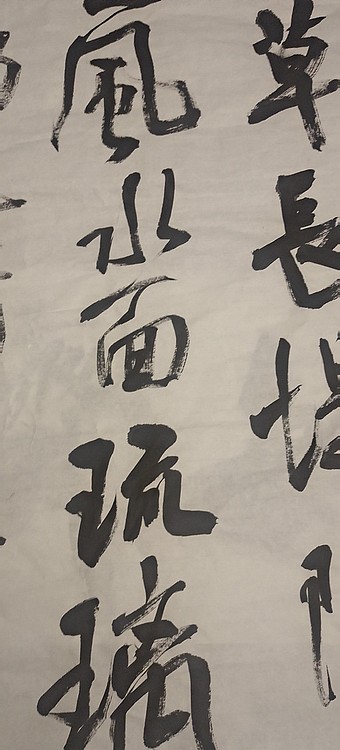 草長堤
風水面琉璃